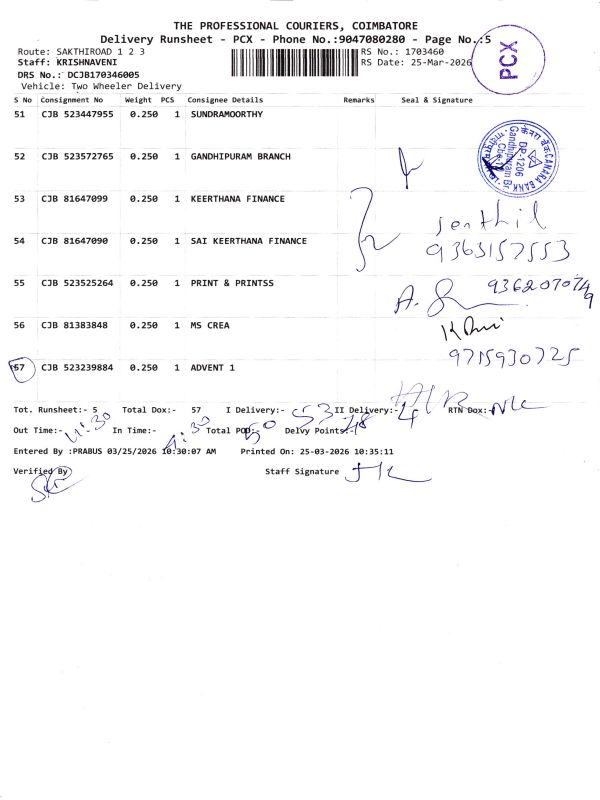 THE PROFESSIONAL COURIERS, COIMBATORE
Delivery Runsheet - PCX - Phone No.:9047080280 - Page No.:5
PCX
Route: SAKTHIROAD 1 2 3
RS No.: 1703460
Staff: KRISHNAVENI
RS Date: 25-Mar-2026
DRS No.: DCJB170346005
Vehicle: Two Wheeler Delivery
S No Consignment No Weight PCS Consignee Details Remarks Seal & Signature
51 CJB 523447955 0.250 1 SUNDRAMOORTHY
52 CJB 523572765 0.250 1 GANDHIPURAM BRANCH
CANARA BANK
DP-1206
Gandhipuram Br.
53 CJB 81647099 0.250 1 KEERTHANA FINANCE
Senthil
54 CJB 81647090 0.250 1 SAI KEERTHANA FINANCE
9363157553
55 CJB 523525264 0.250 1 PRINT & PRINTSS
9362070749
56 CJB 81383848 0.250 1 MS CREA
57 CJB 523239884 0.250 1 ADVENT 1
9715930725
Tot. Runsheet:- 5 Total Dox:- 57 I Delivery:- 53 II Delivery:- 4 RTN Dox:- NIL
Out Time:- 11:30 In Time:- 4:30 Total POD:- 50 Delvy Points:- 48
Entered By :PRABUS 03/25/2026 10:30:07 AM Printed On: 25-03-2026 10:35:11
Verified By
Staff Signature